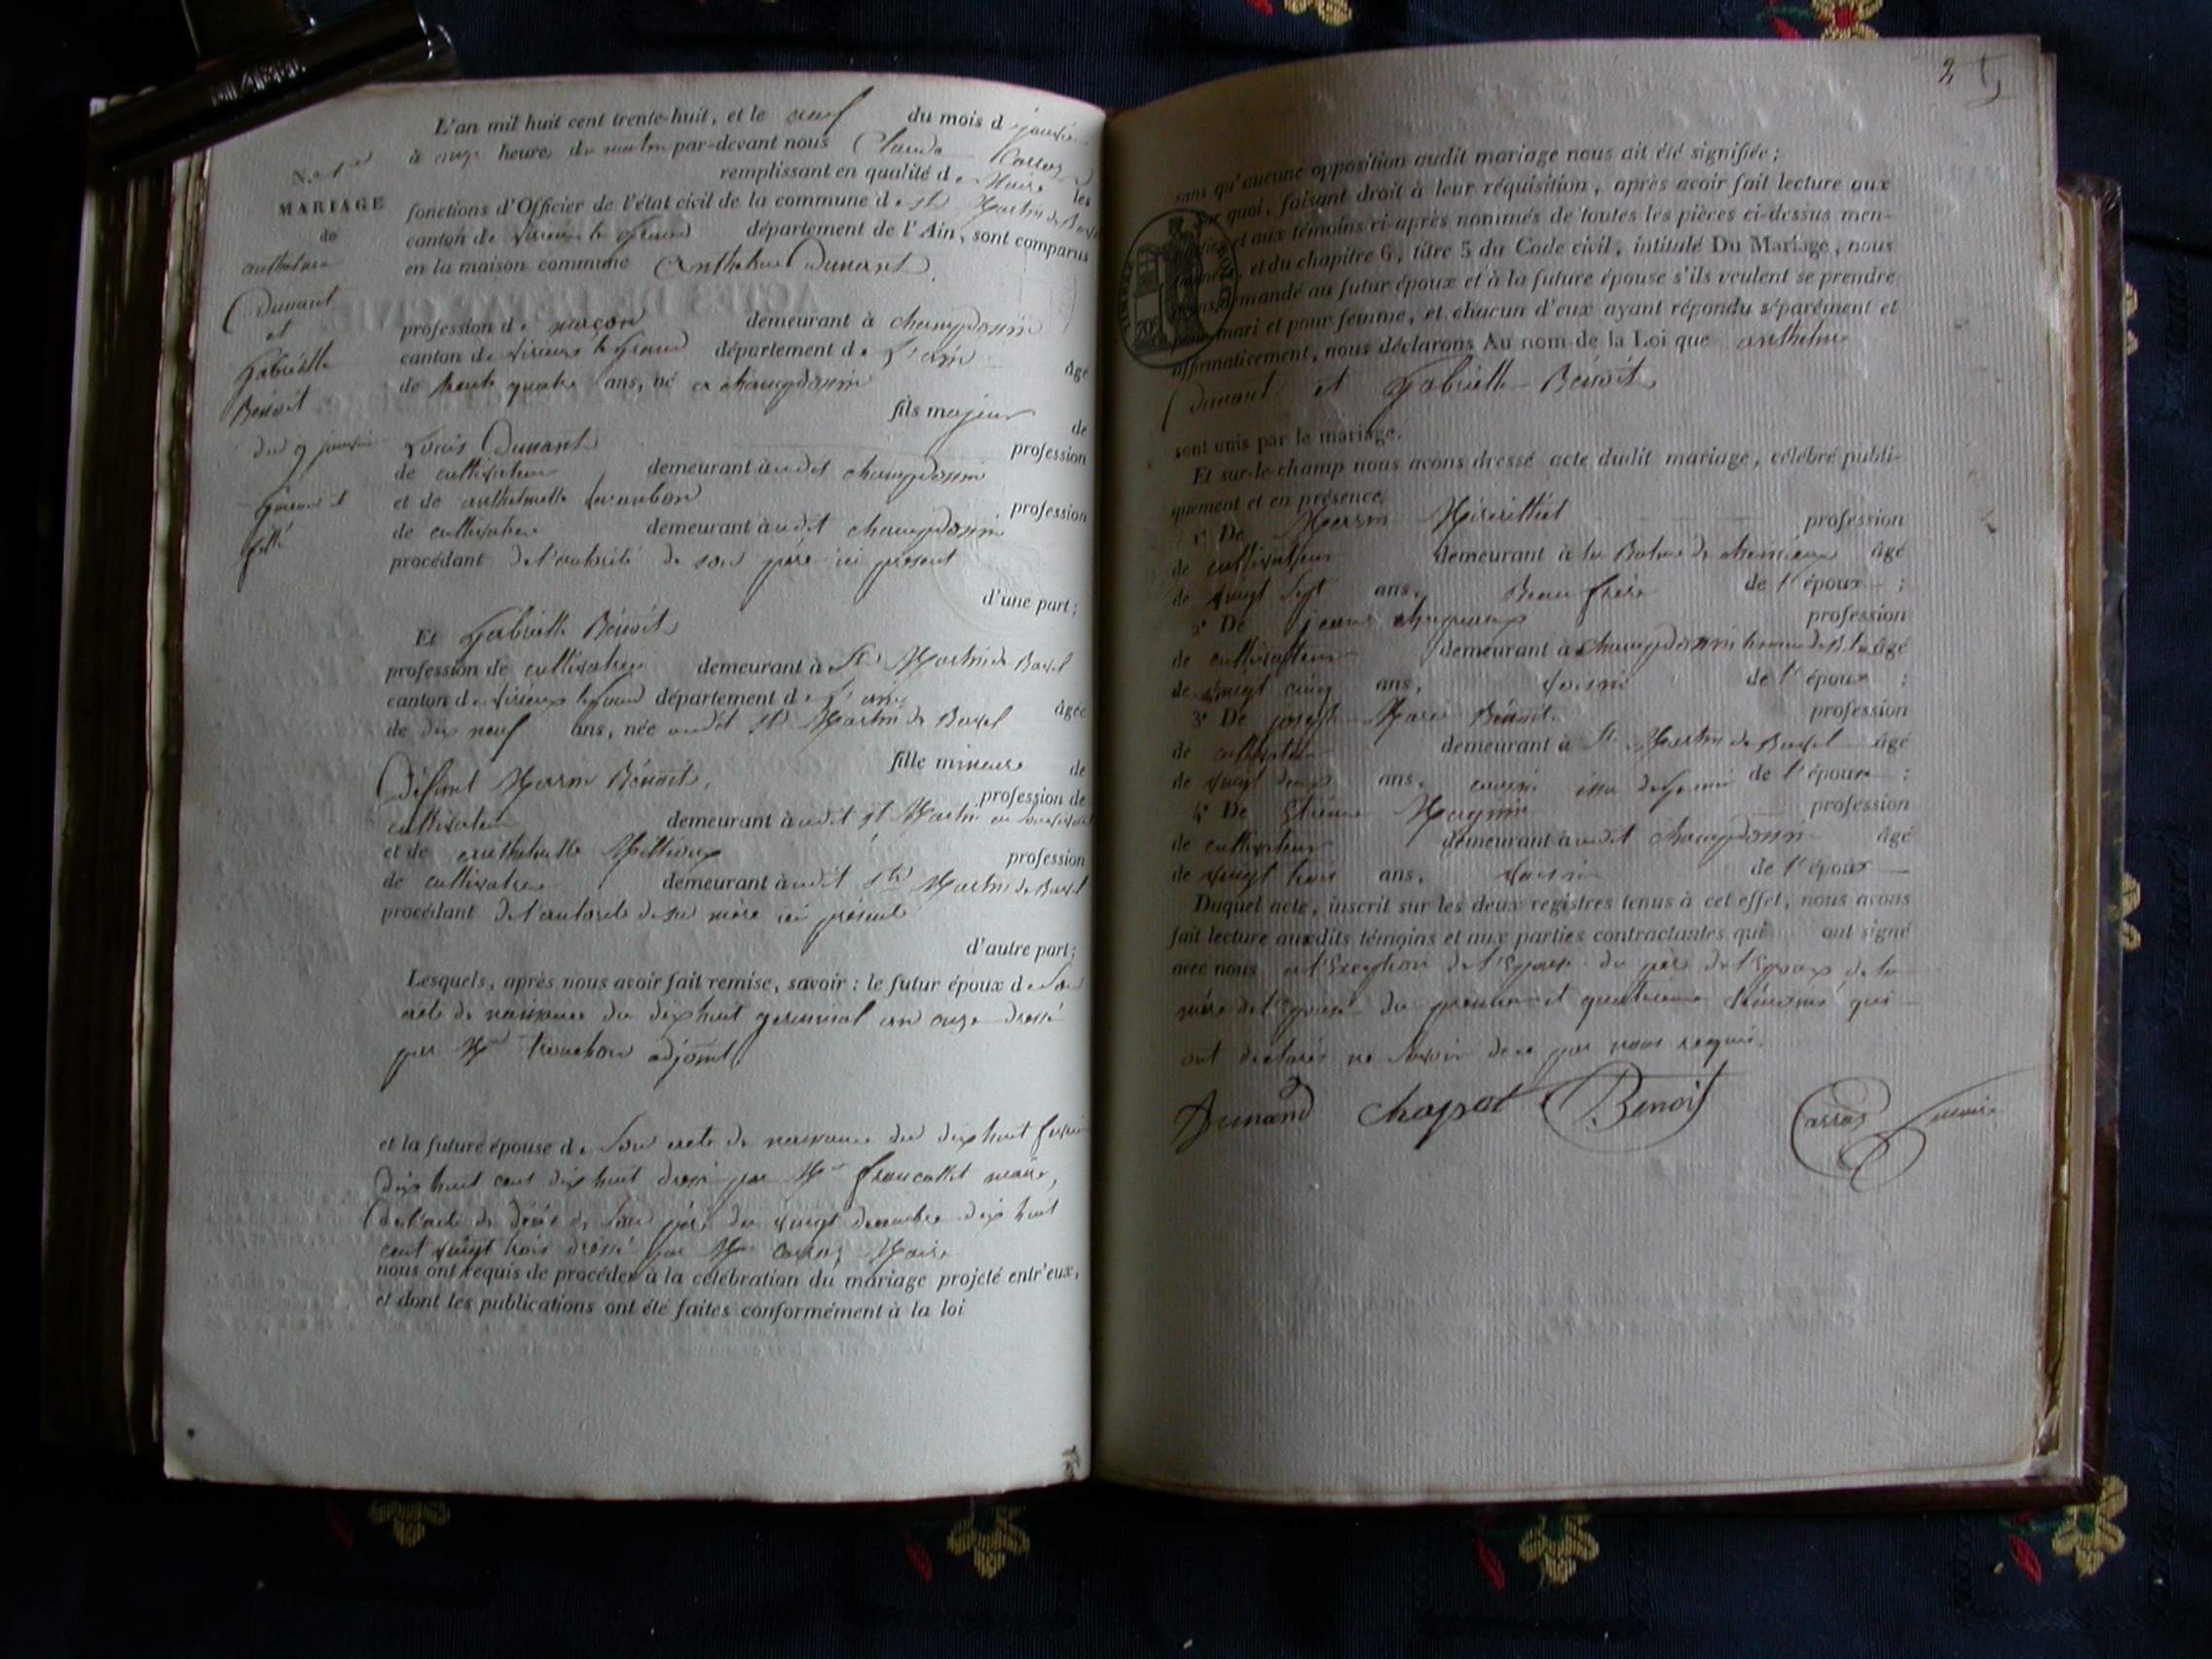 L'an mil huit cent trente-huit, et le neuf du mois d janvier
à onze heures du matin par-devant nous Claude Carraz
remplissant en qualité de Maire les
fonctions d'Officier de l'état civil de la commune de St Martin de Bavel
canton de virieux le grand département de l'Ain, sont comparus
en la maison commune Anthelme Dunant
profession de maçon demeurant à champdossin
canton de virieux le grand département de L'ain âgé
de trente quatre ans, né à champdossin
fils majeur de
Louis Dunant profession
de cultivateur demeurant audit champdossin
et de anthelmette profession
de cultivatrice demeurant audit champdossin
procédant de l'autorité de son père ici présent
d'une part;
Et Gabrielle Benoit
profession de cultivatrice demeurant à St Martin de Bavel
canton de virieux le grand département de L'ain âgée
de dix neuf ans, née audit St Martin de Bavel
fille mineure de
Défunt Marin Benoit, profession de
cultivateur demeurant audit St Martin
et de anthelmette profession
de cultivatrice demeurant audit St Martin de Bavel
procédant de l'autorité de sa mère ici présente
d'autre part;
Lesquels, après nous avoir fait remise, savoir: le futur époux de Son
acte de naissance du dix huit germinal an onze dressé
par Mr trouchon adjoint
et la future épouse de Son acte de naissance du dix huit
Dix huit cent dix huit dressé par Mr francallet maire,
De l'acte de décès de Son père du vingt decembre dix huit
cent vingt trois dressé par Mr Carraz Maire
nous ont requis de procéder à la célébration du mariage projeté entr'eux,
et dont les publications ont été faites conformément à la loi
No 1er
MARIAGE
de
anthelme
Dunant
et
Gabrielle
Benoit
du 9 janvier
Garçon et
fille
25
sans qu'aucune opposition audit mariage nous ait été signifiée;
Sur quoi, faisant droit à leur réquisition, après avoir fait lecture aux
parties et aux témoins ci-après nommés de toutes les pièces ci-dessus men-
tionnées, et du chapitre 6, titre 5 du Code civil, intitulé Du Mariage, nous
avons demandé au futur époux et à la future épouse s'ils veulent se prendre
pour mari et pour femme, et chacun d'eux ayant répondu séparément et
affirmativement, nous déclarons Au nom de la Loi que anthelme
Dunant et Gabrielle Benoit
sont unis par le mariage.
Et sur-le-champ nous avons dressé acte dudit mariage, célébré publi-
quement et en présence
1° De Marin profession
de cultivateur demeurant à la Balme de âgé
de vingt sept ans, Beau frère de l'époux;
2° De profession
de cultivateur demeurant à champdossin âgé
de vingt cinq ans, voisin de l'époux;
3° De joseph Marie Benoit profession
de cultivateur demeurant à St Martin de Bavel âgé
de vingt deux ans, cousin issu de germain de l'épouse;
4° De Etienne Maynin profession
de cultivateur demeurant audit champdossin âgé
de vingt trois ans, voisin de l'époux
Duquel acte, inscrit sur les deux registres tenus à cet effet, nous avons
fait lecture auxdits témoins et aux parties contractantes qui ont signé
avec nous à l'Exception de l'Epouse du père de l'Epoux de la
mère de l'épouse du premier et quatrième témoins qui
ont déclarés ne Savoir de ce par nous requis.
Dunand Chapot Benoit Carraz maire